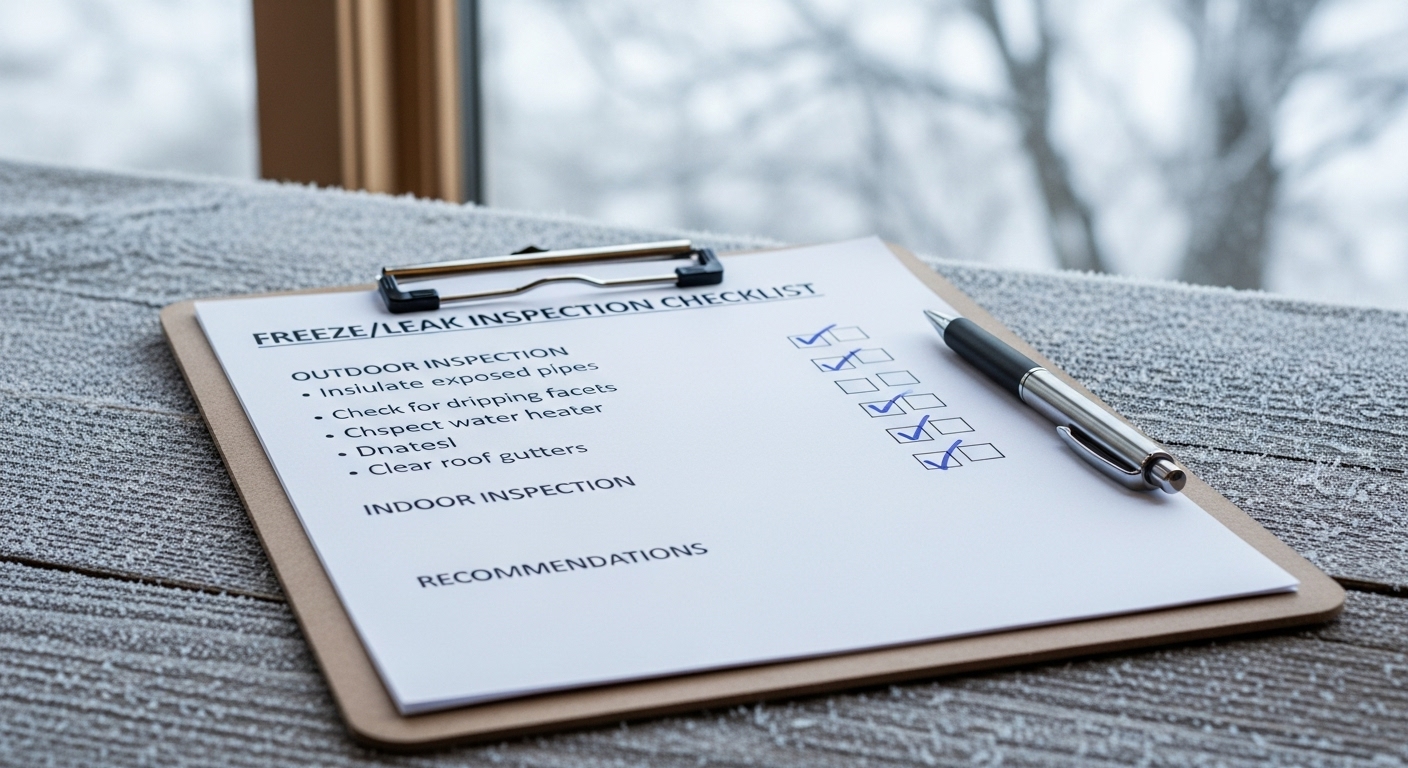 FREEZE/LEAK INSPECTION CHECKLIST
OUTDOOR INSPECTION
• Insiulate exposed pipes
• Check for dripping facets
• Chspect water heater
• Dnatesl
• Clear roof gutters
INDOOR INSPECTION
RECOMMENDATIONS